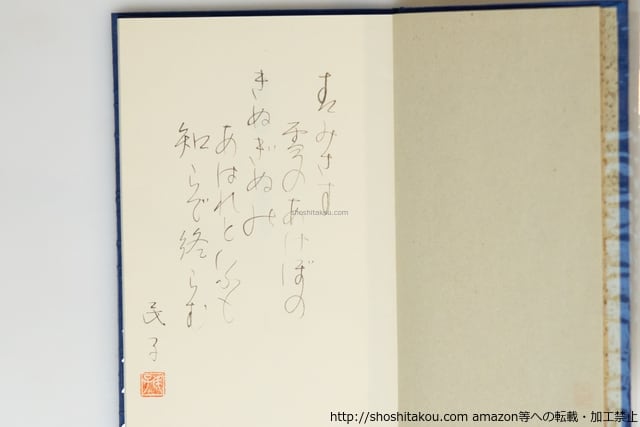 雪のあけぼの
きぬぎぬの
あはれといふも
知らで終らむ
民子
shoshitakou.com
http://shoshitakou.com amazon等への転載・加工禁止